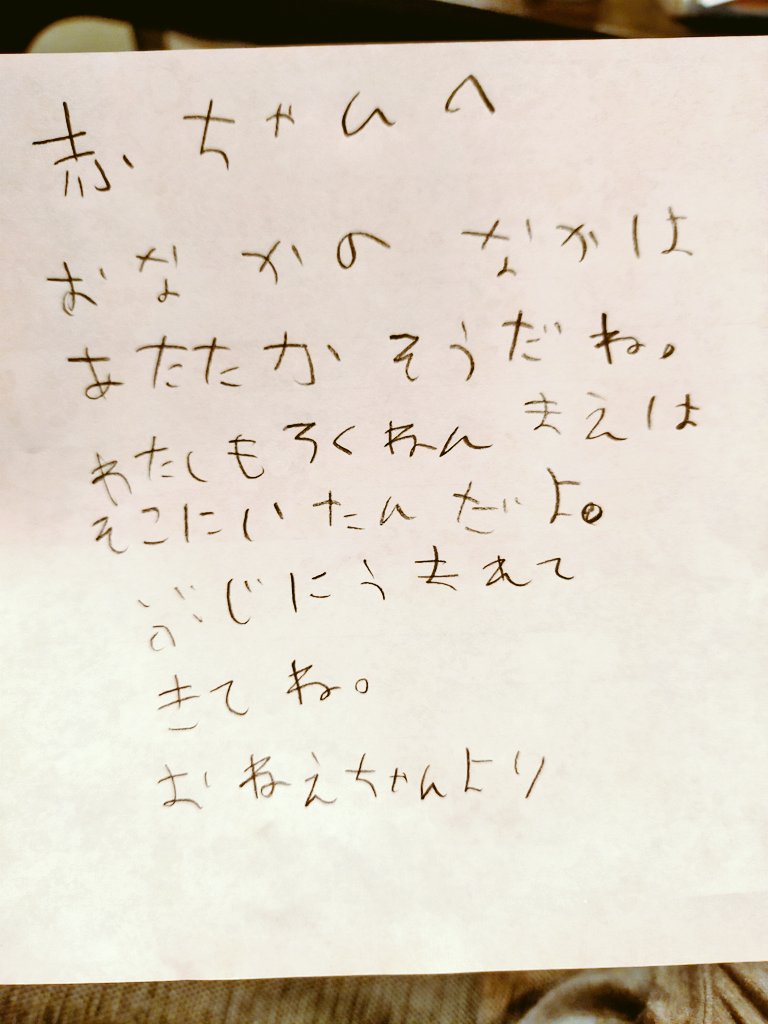 赤ちゃんへ
おなかの なかは
あたたかそうだね。
わたしもろくねんまえは
そこにいたんだよ。
ぶじにうまれて
きてね。
おねえちゃんより